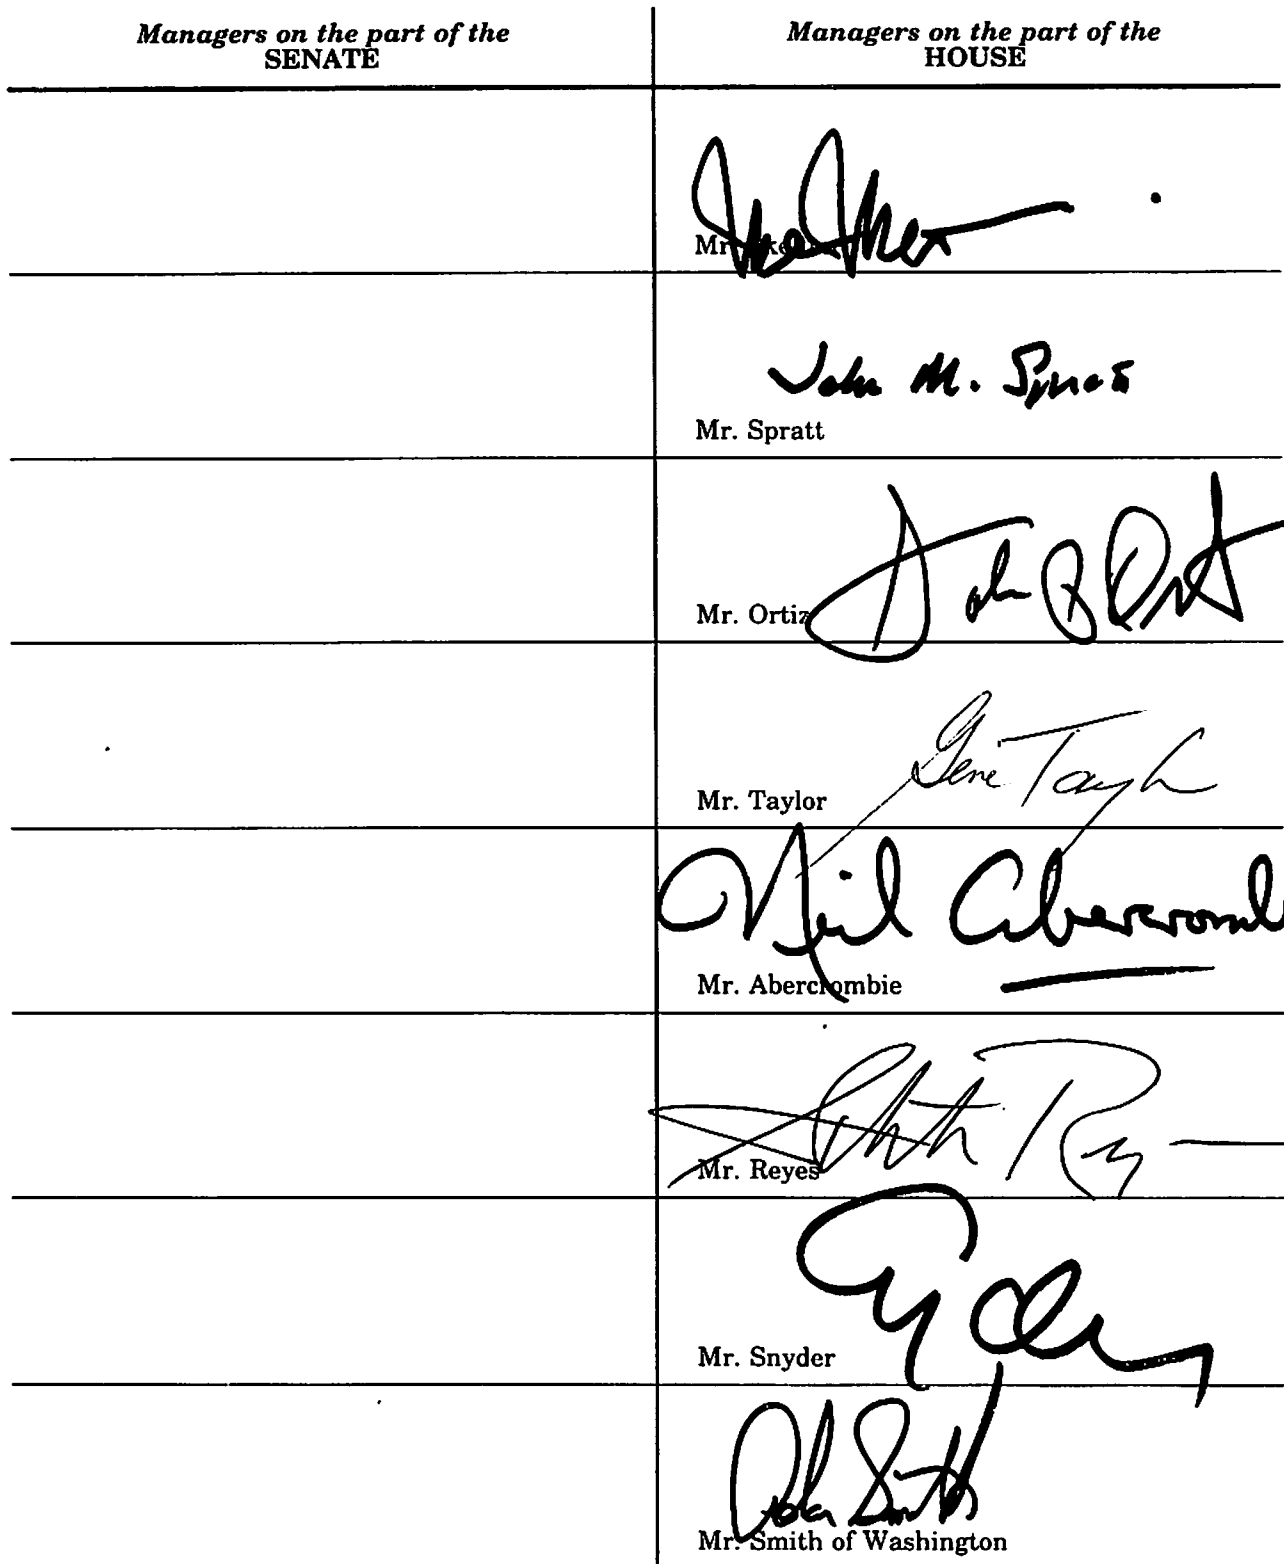 Managers on the part of the
SENATE
Managers on the part of the
HOUSE
Mr.
John M. Spratt
Mr. Spratt
Mr. Ortiz
Gene Taylor
Mr. Taylor
Neil Abercromb
Mr. Abercrombie
Mr. Reyes
Mr. Snyder
Adam Smith
Mr. Smith of Washington